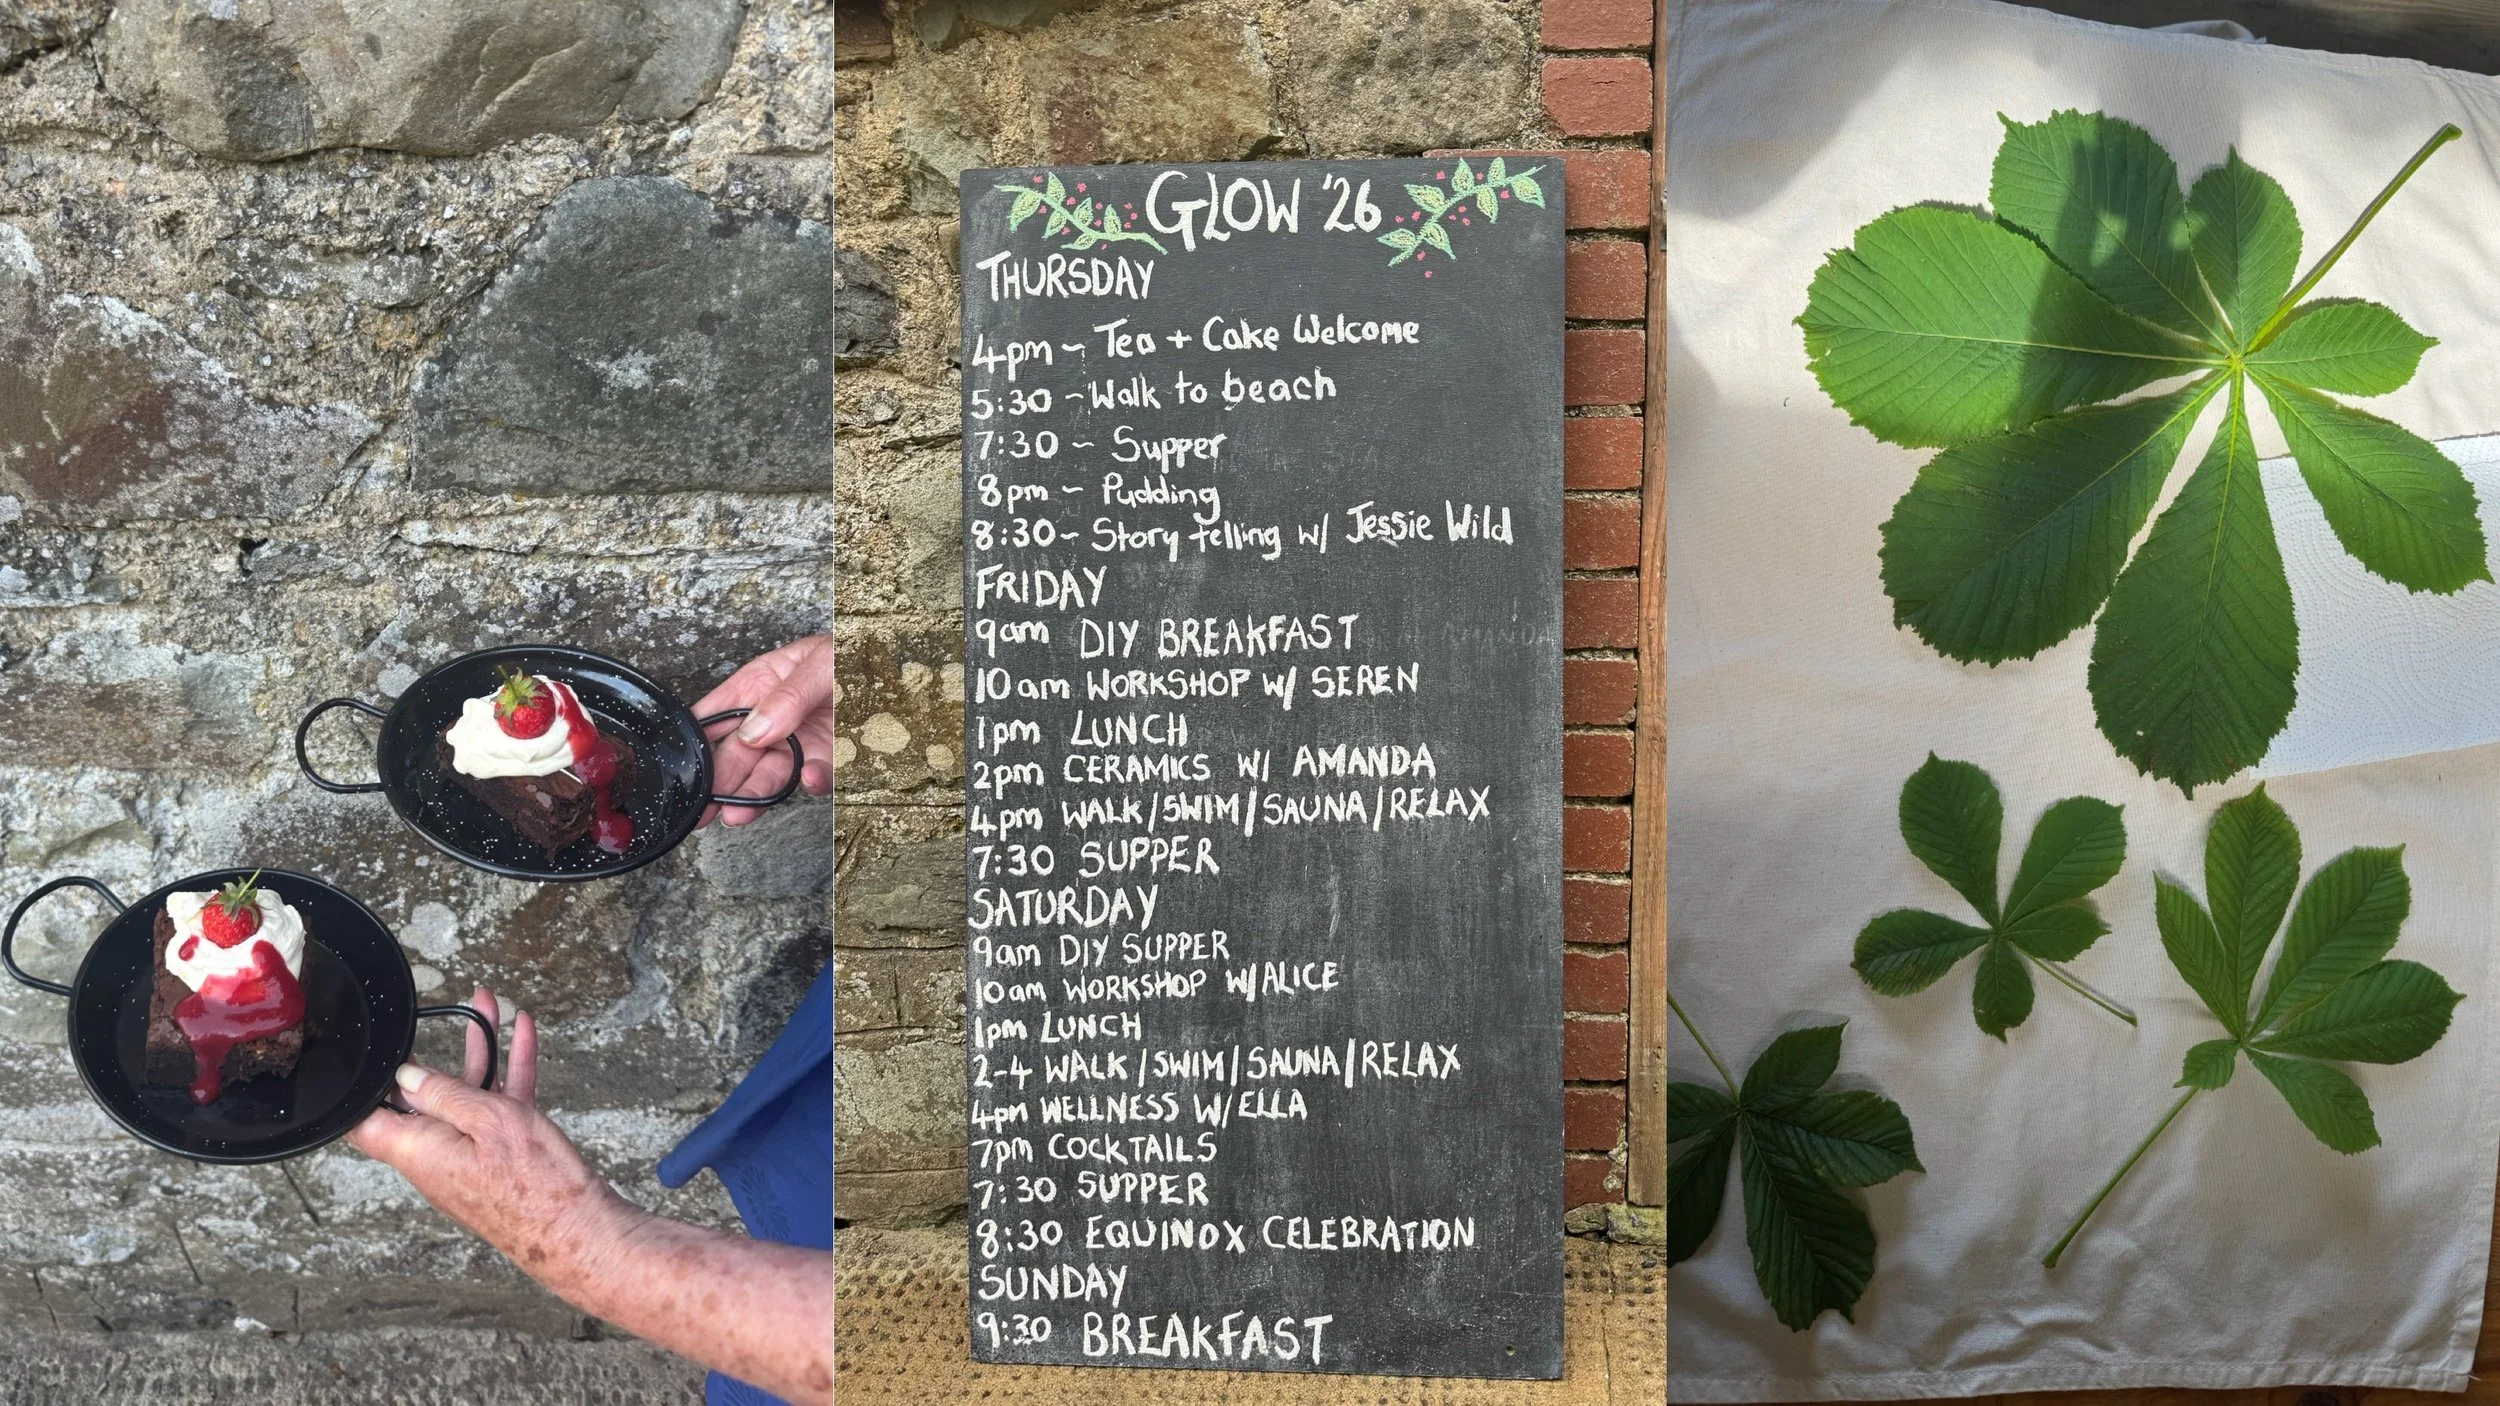 GLOW '26
THURSDAY
4pm ~ Tea + Cake Welcome
5:30 ~ Walk to beach
7:30 ~ Supper
8pm ~ Pudding
8:30 ~ Story telling w/ Jessie Wild
FRIDAY
9am DIY BREAKFAST
10am WORKSHOP W/ SEREN
1pm LUNCH
2pm CERAMICS W/ AMANDA
4pm WALK/SWIM/SAUNA/RELAX
7:30 SUPPER
SATURDAY
9am DIY SUPPER
10am WORKSHOP W/ALICE
1pm LUNCH
2-4 WALK/SWIM/SAUNA/RELAX
4pm WELLNESS W/ELLA
7pm COCKTAILS
7:30 SUPPER
8:30 EQUINOX CELEBRATION
SUNDAY
9:30 BREAKFAST